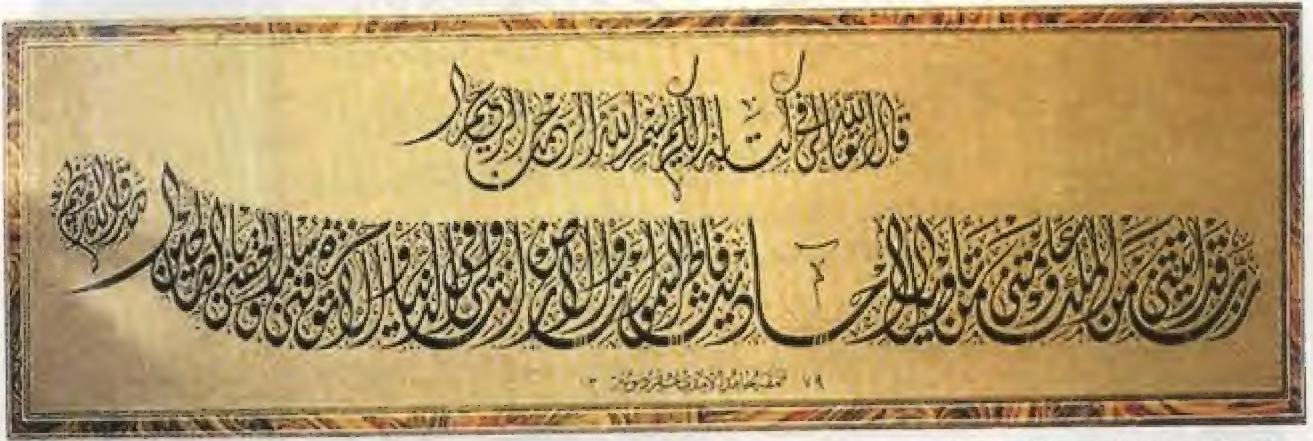 قال الله تعالى في كتابه الكريم بسم الله الرحمن الرحيم
رب قد آتيتني من الملك وعلمتني من تأويل الأحاديث فاطر السموات والأرض أنت ولي في الدنيا والآخرة توفني مسلما وألحقني بالصالحين
صدق الله العظيم